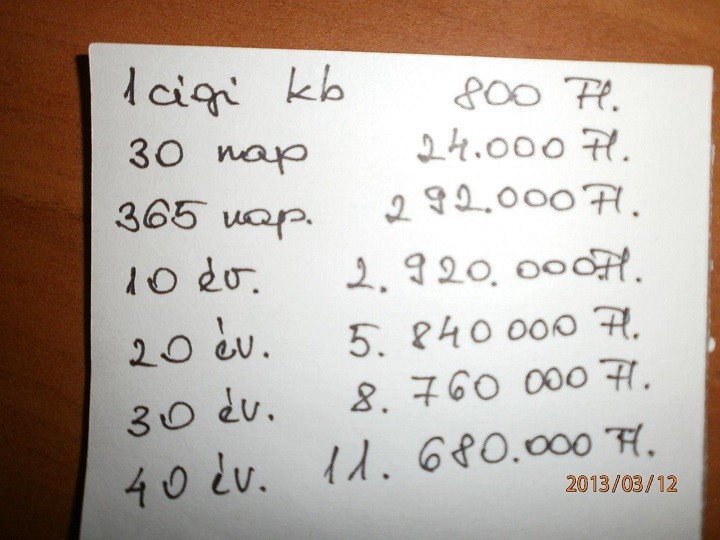 1 cigi kb 800 Ft.
30 nap 24.000 Ft.
365 nap. 292.000 Ft.
10 év. 2.920.000 Ft.
20 év. 5.840 000 Ft.
30 év. 8.760 000 Ft.
40 év. 11.680.000 Ft.
2013/03/12